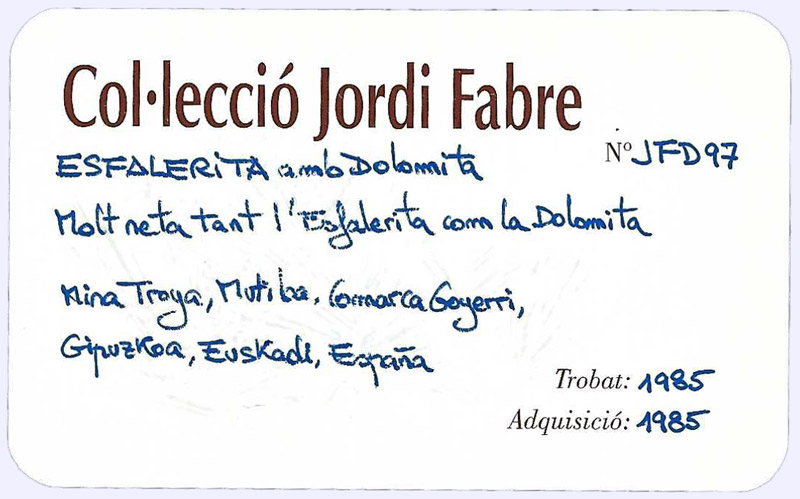 Col·lecció Jordi Fabre
Nº JFD97
ESFALERITA amb Dolomita
Molt neta tant l'Esfalerita com la Dolomita
Mina Troya, Mutiloa, Comarca Goyerri,
Gipuzkoa, Euskadi, España
Trobat: 1985
Adquisició: 1985